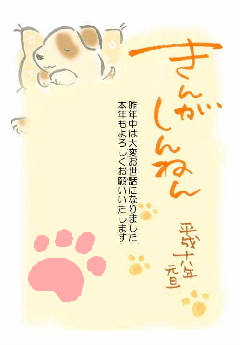 きんが
しんねん
昨年中は大変お世話になりました
本年もよろしくお願いいたします
平成十八年
元旦